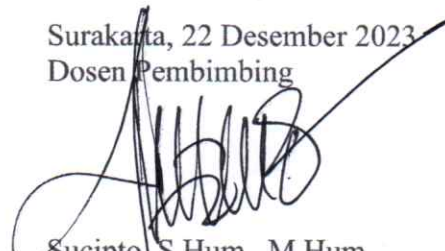 Surakarta, 22 Desember 2023
Dosen Pembimbing
Sucipto, S.Hum., M.Hum